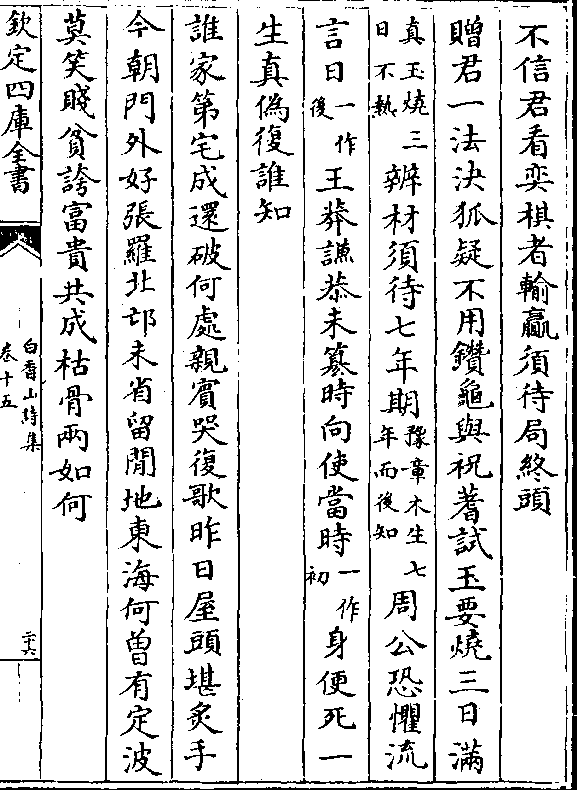 不信君看奕棋者輸贏須待局終頭
贈君一法決狐疑不用鑽龜與祝蓍試玉要燒三日滿
真玉燒三日不熱辨材須待七年期豫章木生七年而後知周公恐懼流
言日一作後王莽謙恭未篡時向使當時一作初身便死一
生真偽復誰知
誰家第宅成還破何處親賓哭復歌昨日屋頭堪炙手
今朝門外好張羅北邙未省留閒地東海何曾有定波
莫笑賤貧誇富貴共成枯骨兩如何
欽定四庫全書
白香山詩集
卷十五
二十六